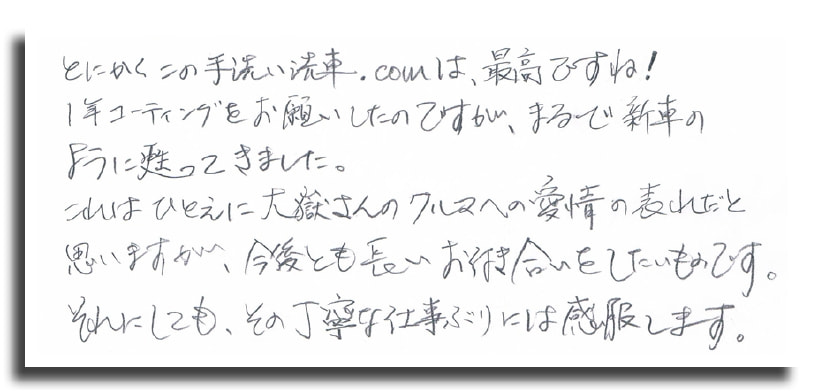 とにかくこの手洗い洗車.comは、最高ですね！
1年コーティングをお願いしたのですが、まるで新車の
ように甦ってきました。
これはひとえに大嶽さんのクルマへの愛情の表れだと
思いますが、今後とも長いお付き合いをしたいものです。
それにしても、その丁寧な仕事ぶりには感服します。